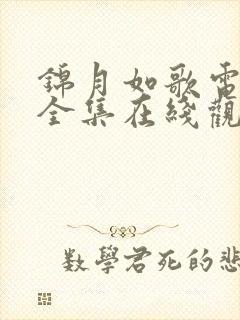 錦月如歌電
全集在綫觀
數學君死的悲